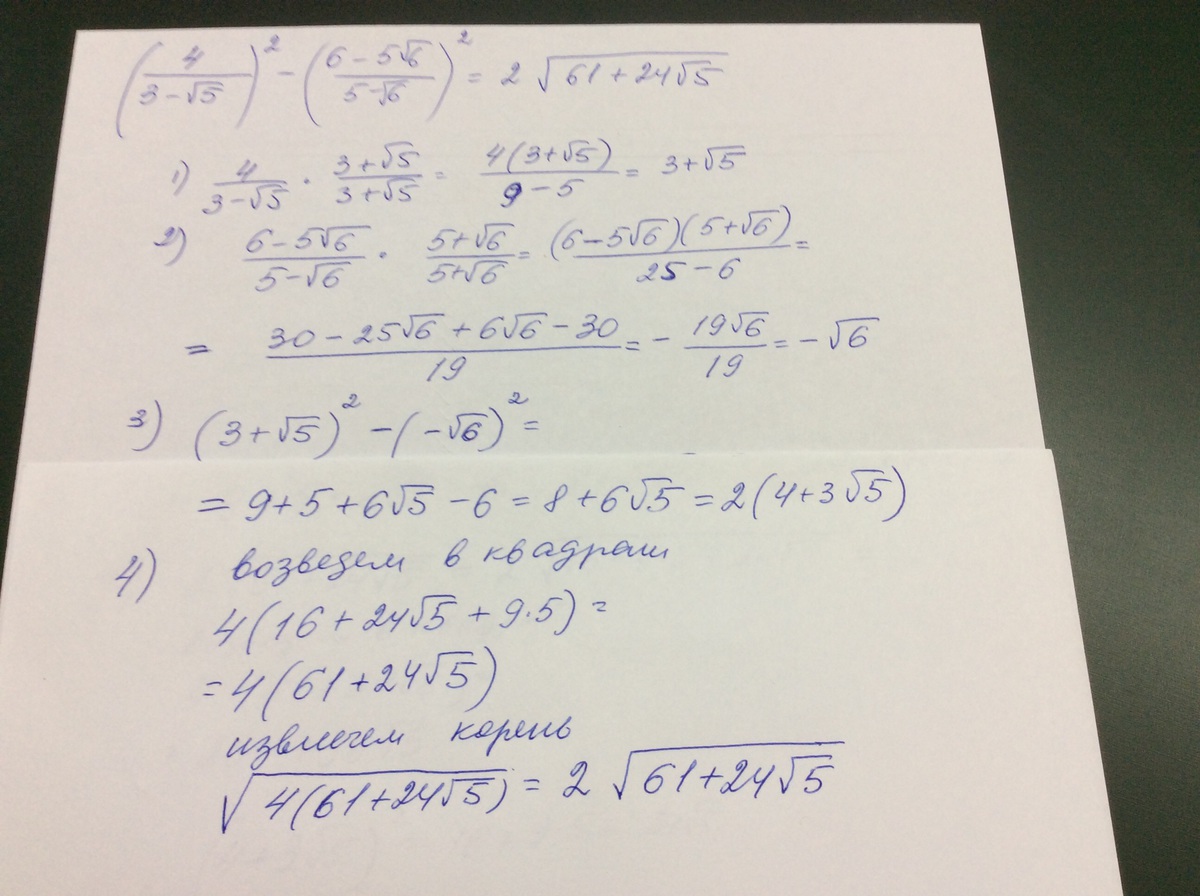 (4/(3-√5))² - ((6-5√6)/(5-√6))² = 2√(61+24√5)
1) 4/(3-√5) · (3+√5)/(3+√5) = 4(3+√5)/(9-5) = 3+√5
2) (6-5√6)/(5-√6) · (5+√6)/(5+√6) = (6-5√6)(5+√6)/(25-6) =
= (30-25√6+6√6-30)/19 = - 19√6/19 = -√6
3) (3+√5)² - (-√6)² =
= 9+5+6√5-6 = 8+6√5 = 2(4+3√5)
4) возведем в квадрат
4(16+24√5+9·5) =
= 4(61+24√5)
извлечем корень
√(4(61+24√5)) = 2√(61+24√5)